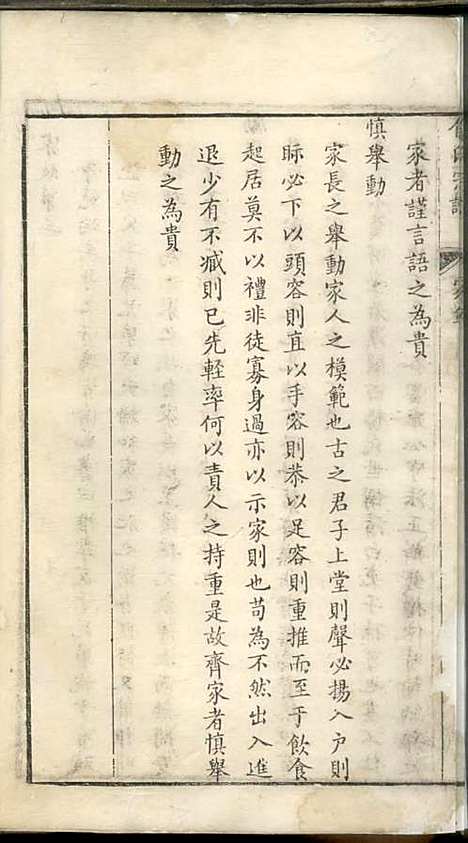 家者謹言語之為貴
慎舉動
家長之舉動家人之模範也古之君子上堂則聲必揚入户則
眎必下以頭容則直以手容則恭以足容則重推而至于飲食
起居莫不以禮非徒寡身過亦以示家則也苟為不然出入進
退少有不臧則已先輕率何以責人之持重是故齊家者慎舉
動之為貴